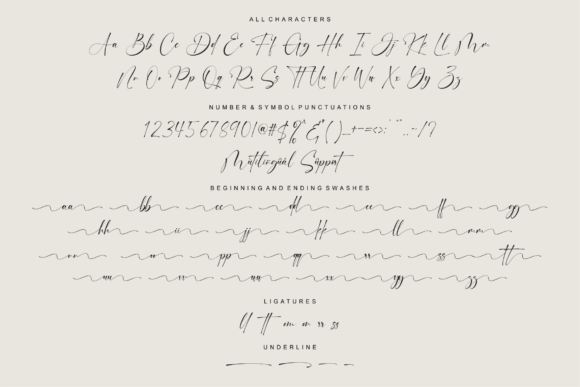 ALL CHARACTERS
Aa Bb Cc Dd Ee Ff Gg Hh Ii Jj Kk Ll Mm
Nn Oo Pp Qq Rr Ss Tt Uu Vv Ww Xx Yy Zz
NUMBER & SYMBOL PUNCTUATIONS
1234567890!@#$%^&*()_+-=<>;:'"",.-/?
Multilingual Support
BEGINNING AND ENDING SWASHES
aa bb cc dd ee ff gg
hh ii jj kk ll mm
nn oo pp qq rr ss tt
uu vv ww xx yy zz
LIGATURES
ll tt om on rr ss
UNDERLINE